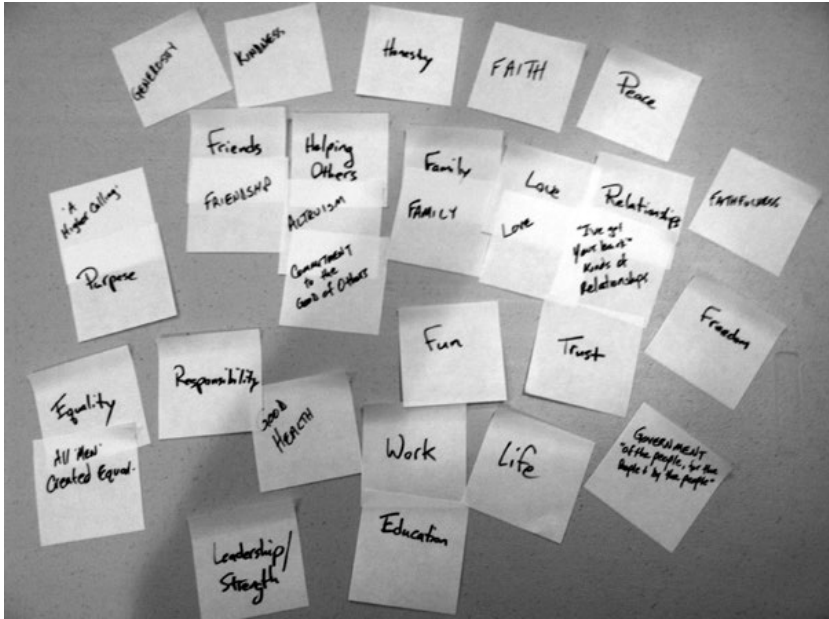 GENEROSITY
KINDNESS
Honesty
FAITH
Peace
Friends
FRIENDSHIP
Helping
Others
ALTRUISM
COMMITMENT
to the
GOOD of OTHERS
Family
FAMILY
Love
Love
Relationships
"I've got
Your back"
Kinds of
Relationships
FAITHFULNESS
"A
Higher Calling"
Purpose
Fun
Trust
Freedom
Equality
All "MEN"
Created Equal.
Responsibility
GOOD
HEALTH
Work
Life
GOVERNMENT
"of the people, for the
people & by the people"
Leadership/
Strength
Education